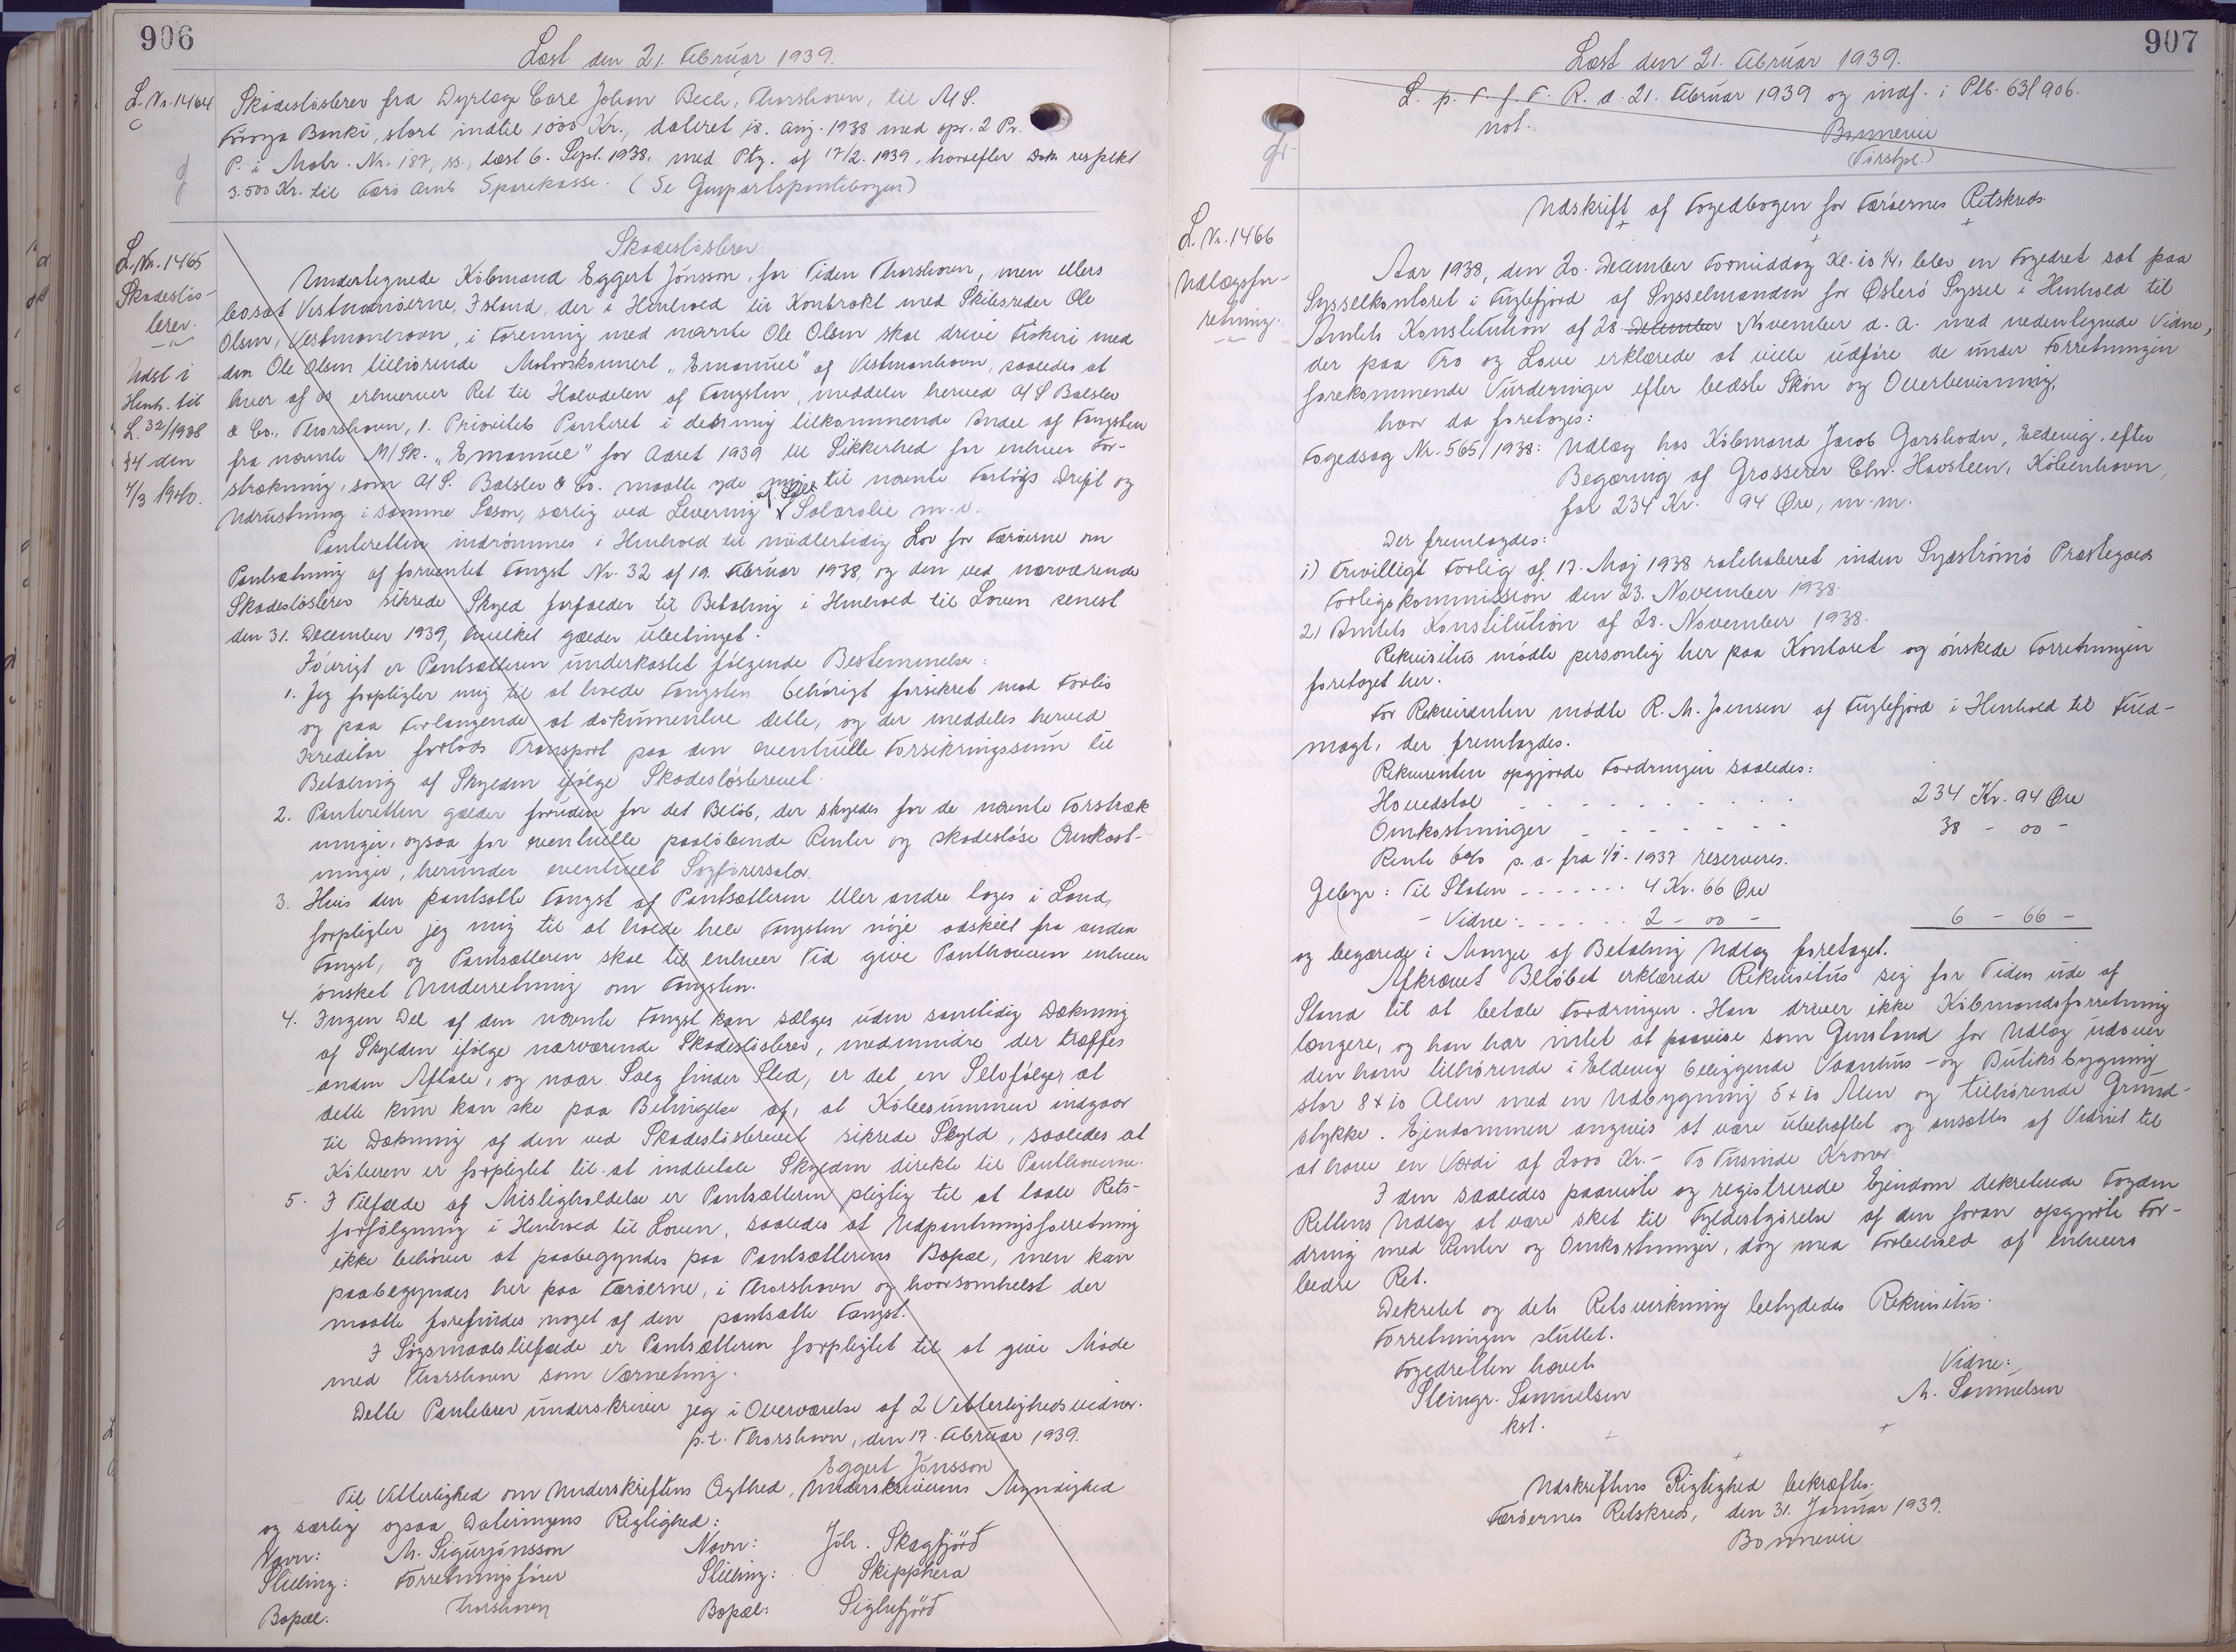 906
Læst den 21. Februar 1939.
L. Nr. 1464
Skadesløsbrev fra Dyrlæge Carl Johan Bech, Thorshavn, til A/S.
Føroya Banki, stort indtil 1000 Kr., dateret 18. Aug. 1938 med opr. 2 Pr.
P. i Matr. Nr. 187, ss, læst 6. Sept. 1938, med Ptg. af 17/2. 1939, hvorefter Dok. respekt.
3.500 Kr. til Færø Amts Sparekasse. (Se Genpartspantebogen)
L. Nr. 1465
Skadesløs-
brev.
Udst i
Henh. til
L. 32/1938
§4 den
4/3 1940.
Skadesløsbrev.
Undertegnede Købmand Eggert Jónsson, for Tiden Thorshavn, men ellers
bosat Vestmanøerne, Island, der i Henhold til Kontrakt med Skibsreder Ole
Olsen, Vestmanhavn, i Forening med nævnte Ole Olsen skal drive Fiskeri med
den Ole Olsen tilhørende Motorskonnert „Emanuel" af Vestmanhavn, saaledes at
hver af os erhverver Ret til Halvdelen af Fangsten, meddeler herved A/S Balslev
& Co., Thorshavn, 1. Prioritets Panteret i den mig tilkommende Andel af Fangsten
fra nævnte M/Sk. „Emanuel" for Aaret 1939 til Sikkerhed for enhver For-
strækning, som A/S. Balslev & Co. maatte yde mig til nævnte Fartøjs Drift og
Udrustning i samme Sæson, særlig ved Levering af Salt, Solarolie m.v.
Panteretten indrømmes i Henhold til midlertidig Lov for Færøerne om
Pantsætning af forventet Fangst Nr. 32 af 19. Februar 1938, og den ved nærværende
Skadesløsbrev sikrede Skyld forfalder til Betaling i Henhold til Loven senest
den 31. December 1939, hvilket gælder ubetinget.
Iøvrigt er Pantsætteren underkastet følgende Bestemmelser:
1. Jeg forpligter mig til at holde Fangsten behørigt forsikret mod Forlis
og paa Forlangende at dokumentere dette, og der meddeles herved
Kreditor forlods Transport paa den eventuelle Forsikringssum til
Betaling af Skylden ifølge Skadesløsbrevet.
2. Panteretten gælder foruden for det Beløb, der skyldes for de nævnte Forstræk
ninger, ogsaa for eventuelle paaløbende Renter og skadesløse Omkost-
ninger, herunder eventuelt Sagførersalær.
3. Hvis den pantsatte Fangst af Pantsætteren eller andre tages i Land,
forpligter jeg mig til at holde hele Fangsten nøje adskilt fra anden
Fangst, og Pantsætteren skal til enhver Tid give Panthaveren enhver
ønsket Underretning om Fangsten.
4. Ingen Del af den nævnte Fangst kan sælges uden samtidig Dækning
af Skylden ifølge nærværende Skadesløsbrev, medmindre der træffes
anden Aftale, og naar Salg finder Sted, er det en Selvfølge, at
dette kun kan ske paa Betingelse af, at Købesummen indgaar
til Dækning af den ved Skadesløsbrevet sikrede Skyld, saaledes at
Køberen er forpligtet til at indbetale Skylden direkte til Panthaverne.
5. I Tilfælde af Misligholdelse er Pantsætteren pligtig til at taale Rets-
forfølgning i Henhold til Loven, saaledes at Udpantningsforretning
ikke behøver at paabegyndes paa Pantsætterens Bopæl, men kan
paabegyndes her paa Færøerne, i Thorshavn og hvorsomhelst der
maatte forefindes noget af den pantsatte Fangst.
I Søgsmaalstilfælde er Pantsætteren forpligtet til at give Møde
med Thorshavn som Værneting.
Dette Pantebrev underskriver jeg i Overværelse af 2 Vitterlighedsvidner.
p.t. Thorshavn, den 17. Februar 1939.
Eggert Jónsson
Til Vitterlighed om Underskriftens Ægthed, Underskriverens Myndighed
og særlig ogsaa Dateringens Rigtighed:
Navn: M. Sigurjónsson Navn: Jóh. Skagfjörd
Stilling: Forretningsfører Stilling: Skipphera
Bopæl: Thorshavn Bopæl: Siglufjörd
907
Læst den 21. Februar 1939.
L. p. F. f. F. R. d. 21. Februar 1939 og indf. i Ptb. 63 f 906.
not.
Bonnevie
(Først.)
L. Nr. 1466
Udlægsfor-
retning.
Udskrift af Fogedbogen for Færøernes Retskreds
Aar 1938, den 20. December Formiddag Kl. 10 1/4, blev en Fogedret sat paa
Sysselkontoret i Fuglefjord af Sysselmanden for Østerø Syssel i Henhold til
Amtets Konstitution af 28. December November d. A. med nedentegnede Vidne,
der paa Tro og Love erklærede at ville udføre de under Forretningen
forekommende Vurderinger efter bedste Skøn og Overbevisning,
hvor da foretoges:
Fogedsag Nr. 565/1938: Udlæg hos Købmand Jacob Garshodn, Eldevig, efter
Begæring af Grosserer Chr. Havsteen, København,
for 234 Kr. 94 Øre, m.m.
Der fremlagdes:
1) Frivilligt Forlig af 17. Maj 1938 ratihaberet inden Sydstrømø Præstegælds
Forligskommission den 23. November 1938.
2) Amtets Konstitution af 28. November 1938.
Rekvisitus mødte personlig her paa Kontoret og ønskede Forretningen
foretaget her.
For Rekvirenten mødte R. M. Joensen af Fuglefjord i Henhold til Fuld-
magt, der fremlagdes.
Rekvirenten opgjorde Fordringen saaledes:
Hovedstol - - - - - - - - - 234 Kr. 94 Øre
Omkostninger - - - - - - - 38 - 00 -
Rente 6% p.a. fra 1/1. 1937 reserveres.
Gebyr: Til Staten - - - - - - - 4 Kr. 66 Øre
- Vidne: - - - - - 2 - 00 - 6 - 66 -
og begærede i Mangel af Betaling Udlæg foretaget.
Afkrævet Beløbet erklærede Rekvisitus sig for Tiden ude af
Stand til at betale Fordringen. Han driver ikke Købmandsforretning
længere, og han har intet at paavise som Genstand for Udlæg udover
den ham tilhørende i Eldevig beliggende Vaanhus- og Butiksbygning
stor 8 x 10 Alen med en Udbygning 5 x 10 Alen og tilhørende Grund-
stykke. Ejendommen angives at være ubehæftet og ansættes af Vidnet til
at have en Værdi af 2000 Kr. - To Tusinde Kroner.
I den saaledes paaviste og registrerede Ejendom dekreterede Fogden
Rettens Udlæg at være sket til Fyldestgørelse af den foran opgjorte For-
dring med Renter og Omkostninger, dog med Forbehold af enhvers
bedre Ret.
Dekretet og dets Retsvirkning betydedes Rekvisitus.
Forretningen sluttet.
Fogedretten hævet.
Steingr. Samuelsen
kst.
Vidne:
M. Samuelsen
Udskriftens Rigtighed bekræftes.
Færøernes Retskreds, den 31. Januar 1939.
Bonnevie